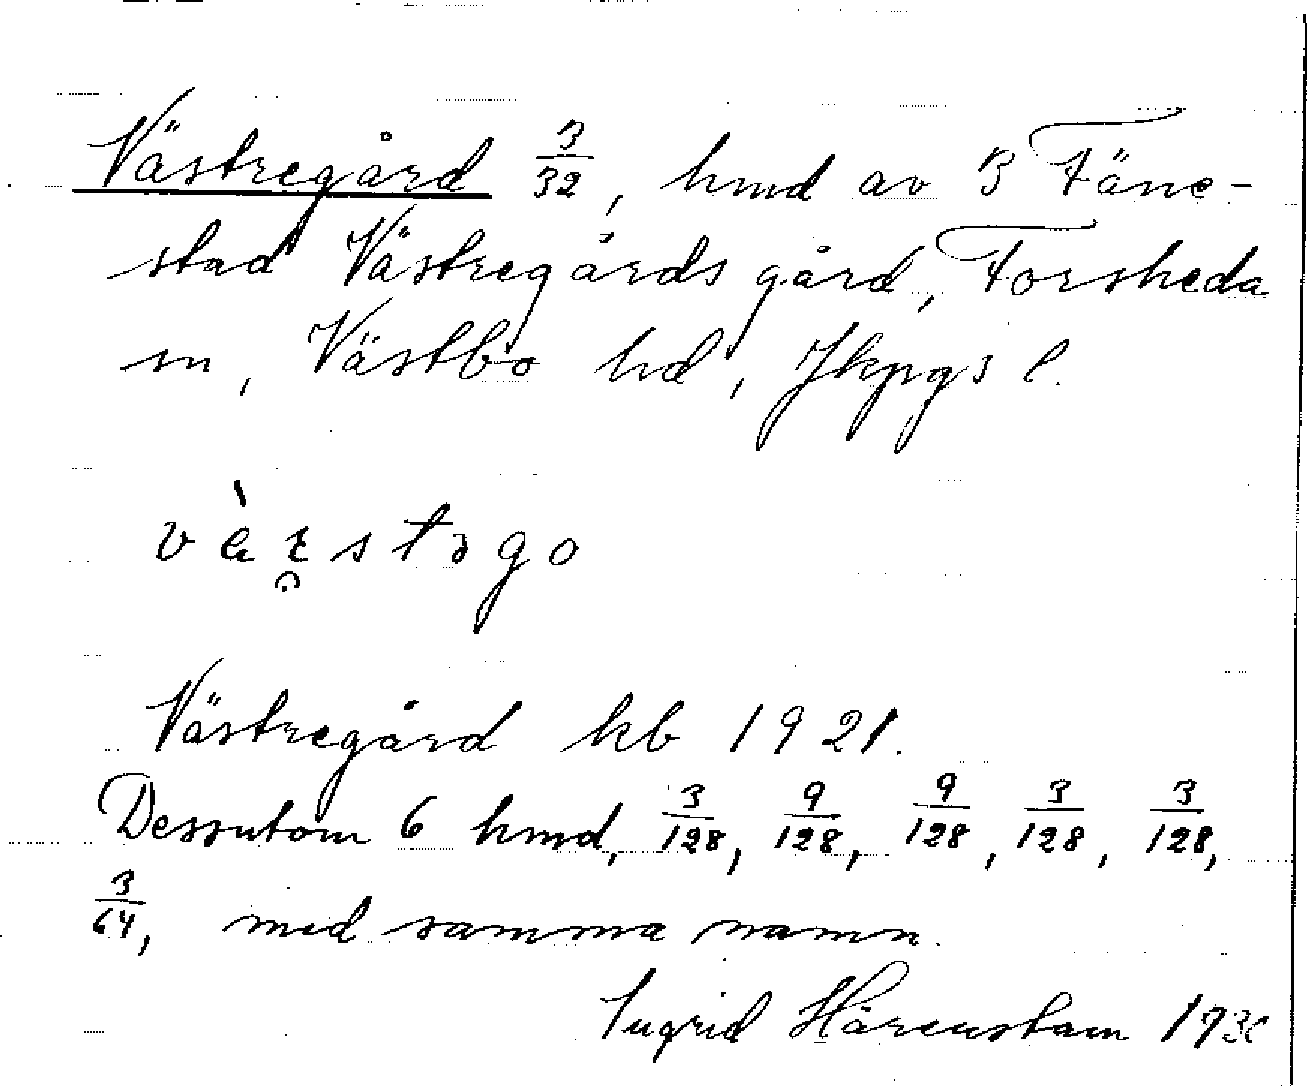 Västregård 3/32, hmd av 3 Fäne-
stad Västregårds gård, Forsheda
sn, Västbo hd, Jkpgs l.
Västregård kb 1921.
Dessutom 6 hmd, 3/128, 9/128, 9/128, 3/128, 3/128,
3/64, med samma namn.
Ingrid Härenstam